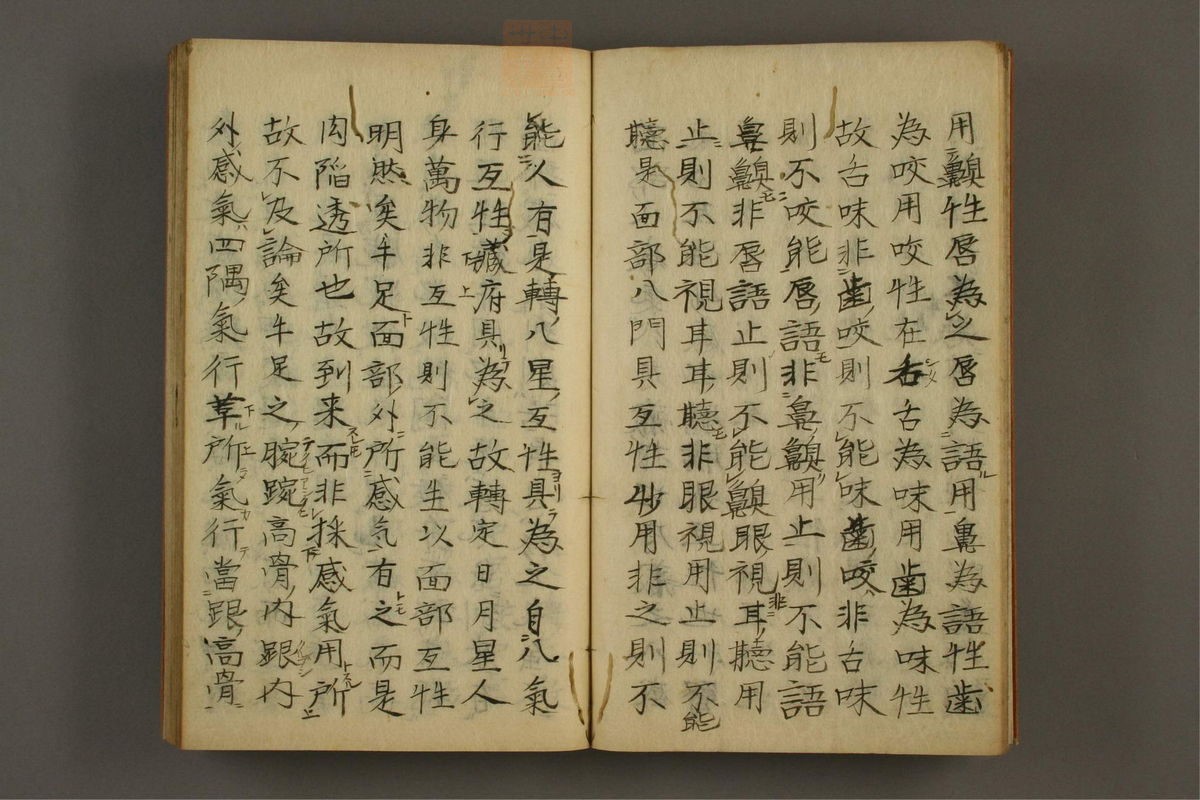 用齅性唇為之唇為語用鼻為語性歯
為咬用咬性在舌舌為味用歯為味性
故舌味非歯咬則不能味歯咬非舌味
則不咬能唇語非鼻齅用止則不能語
鼻齅非唇語止則不能齅眼視耳聴用
止則不能視耳耳聴非眼視用止則不能
聴是面部八門具互性妙用非之則不
能以有是轉八星互性具為之自八氣
行互性藏府具為之故轉定日月星人
身萬物非互性則不能生以面部互性
明然矣手足面部外所感気有之而是
肉陥透所也故到来而非採感氣用所
故不及論矣手足之腕踠高骨内跟内
外感氣四隅氣行草所氣行當跟高骨